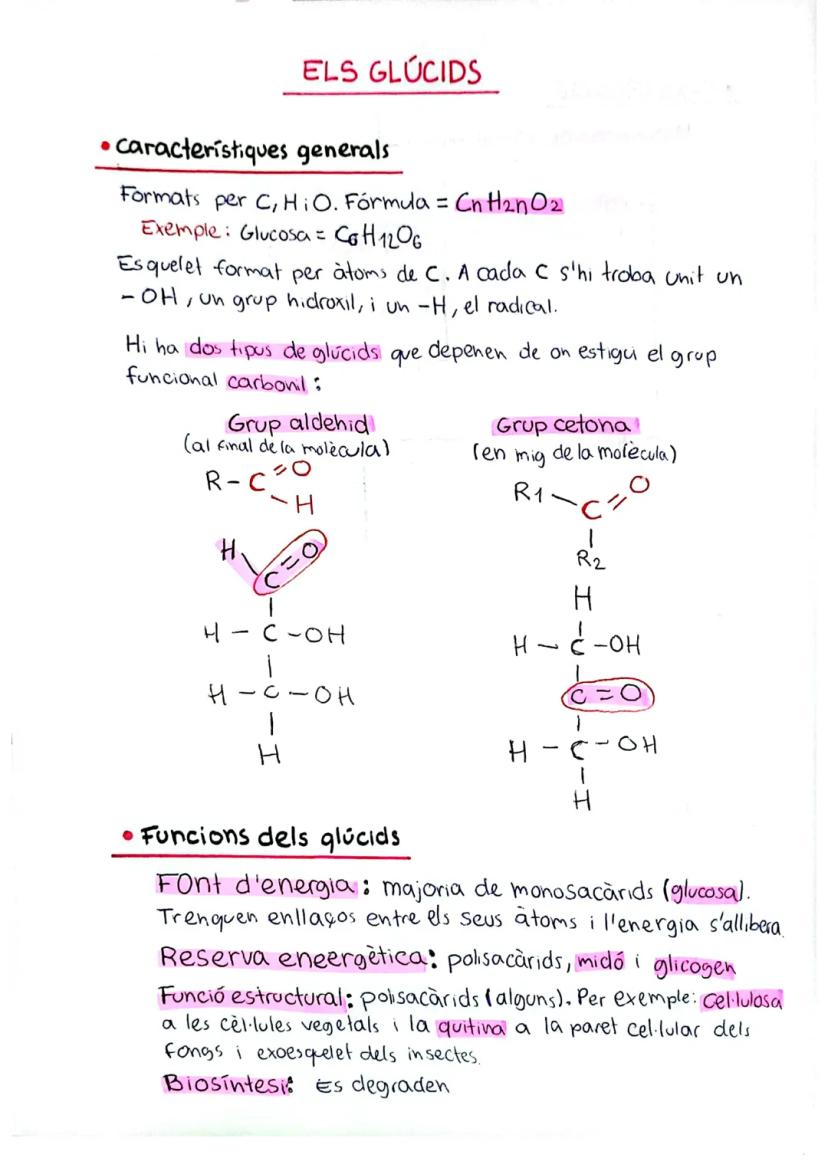 ELS GLÚCIDS
• Característiques generals
Formats per C, H i O. Fórmula = CnH2nO2
Exemple: Glucosa = C6H12O6
Esquelet format per àtoms de C. A cada C s'hi troba unit un
-OH, un grup hidroxil, i un -H, el radical.
Hi ha dos tipus de glúcids que depenen de on estigui el grup
funcional carbonil:
Grup aldehid
(al final de la molècula)
R-C=O
-H
H
C=O
H-C-OH
H-C-OH
H
Grup cetona
(en mig de la molècula)
R1-C=O
R2
H
H-C-OH
C=O
H-C-OH
H
• Funcions dels glúcids
FOnt d'energia: majoria de monosacàrids (glucosa).
Trenquen enllaços entre els seus àtoms i l'energia s'allibera.
Reserva eneergètica: polisacàrids, midó i glicogen
Funció estructural: polisacàrids (alguns). Per exemple: Cel·lulosa
a les cèl·lules vegetals i la quitina a la paret cel·lular dels
fongs i exoesquelet dels insectes.
Biosíntesi: Es degraden